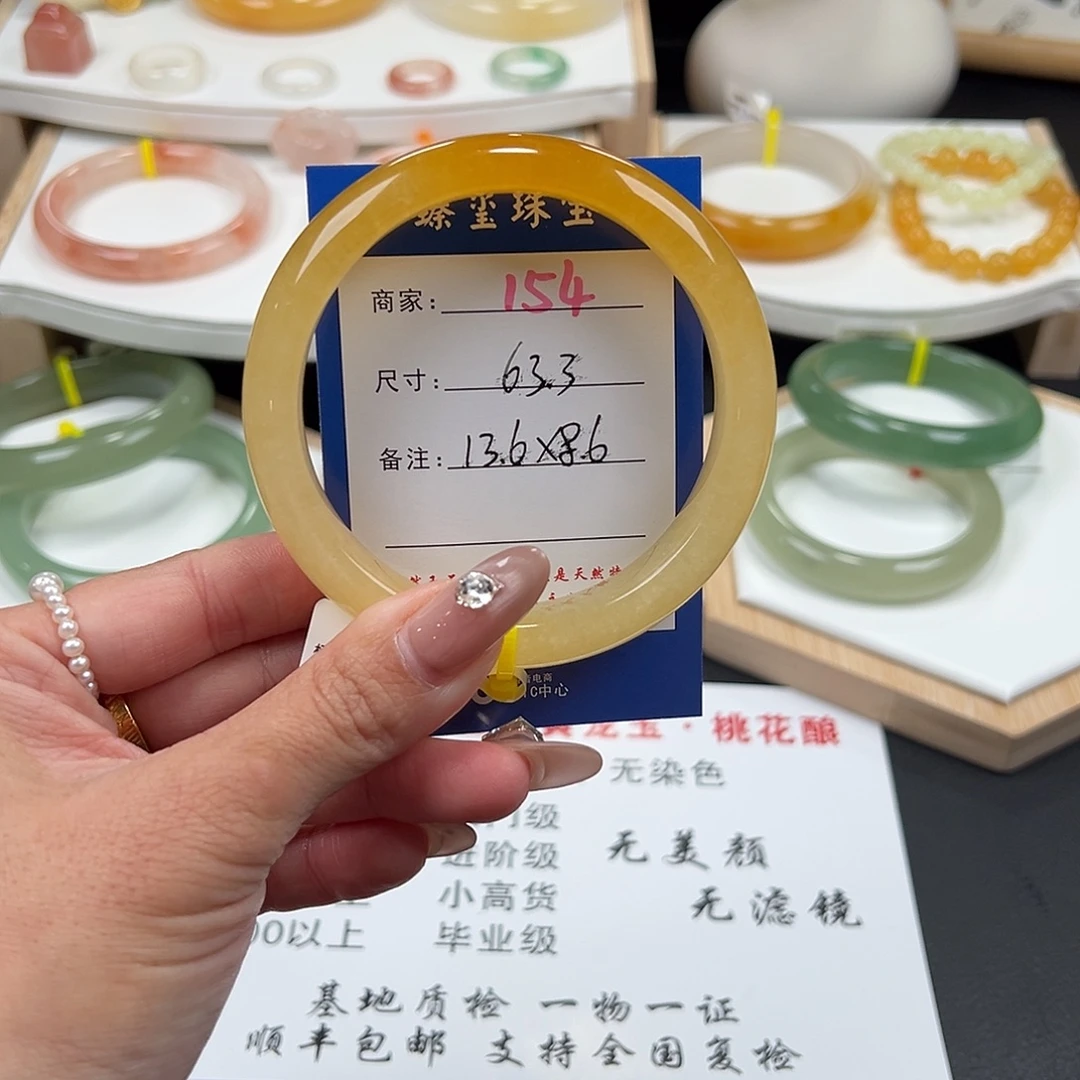 臻玺珠宝
商家: 154
尺寸: 63.3
备注: 13.6×8.6
是天然
C中心
黄龙玉·桃花酿
无染色
门级
进阶级
无美颜
小高货
无滤镜
00以上 毕业级
基地质检 一物一证
顺丰包邮 支持全国复检